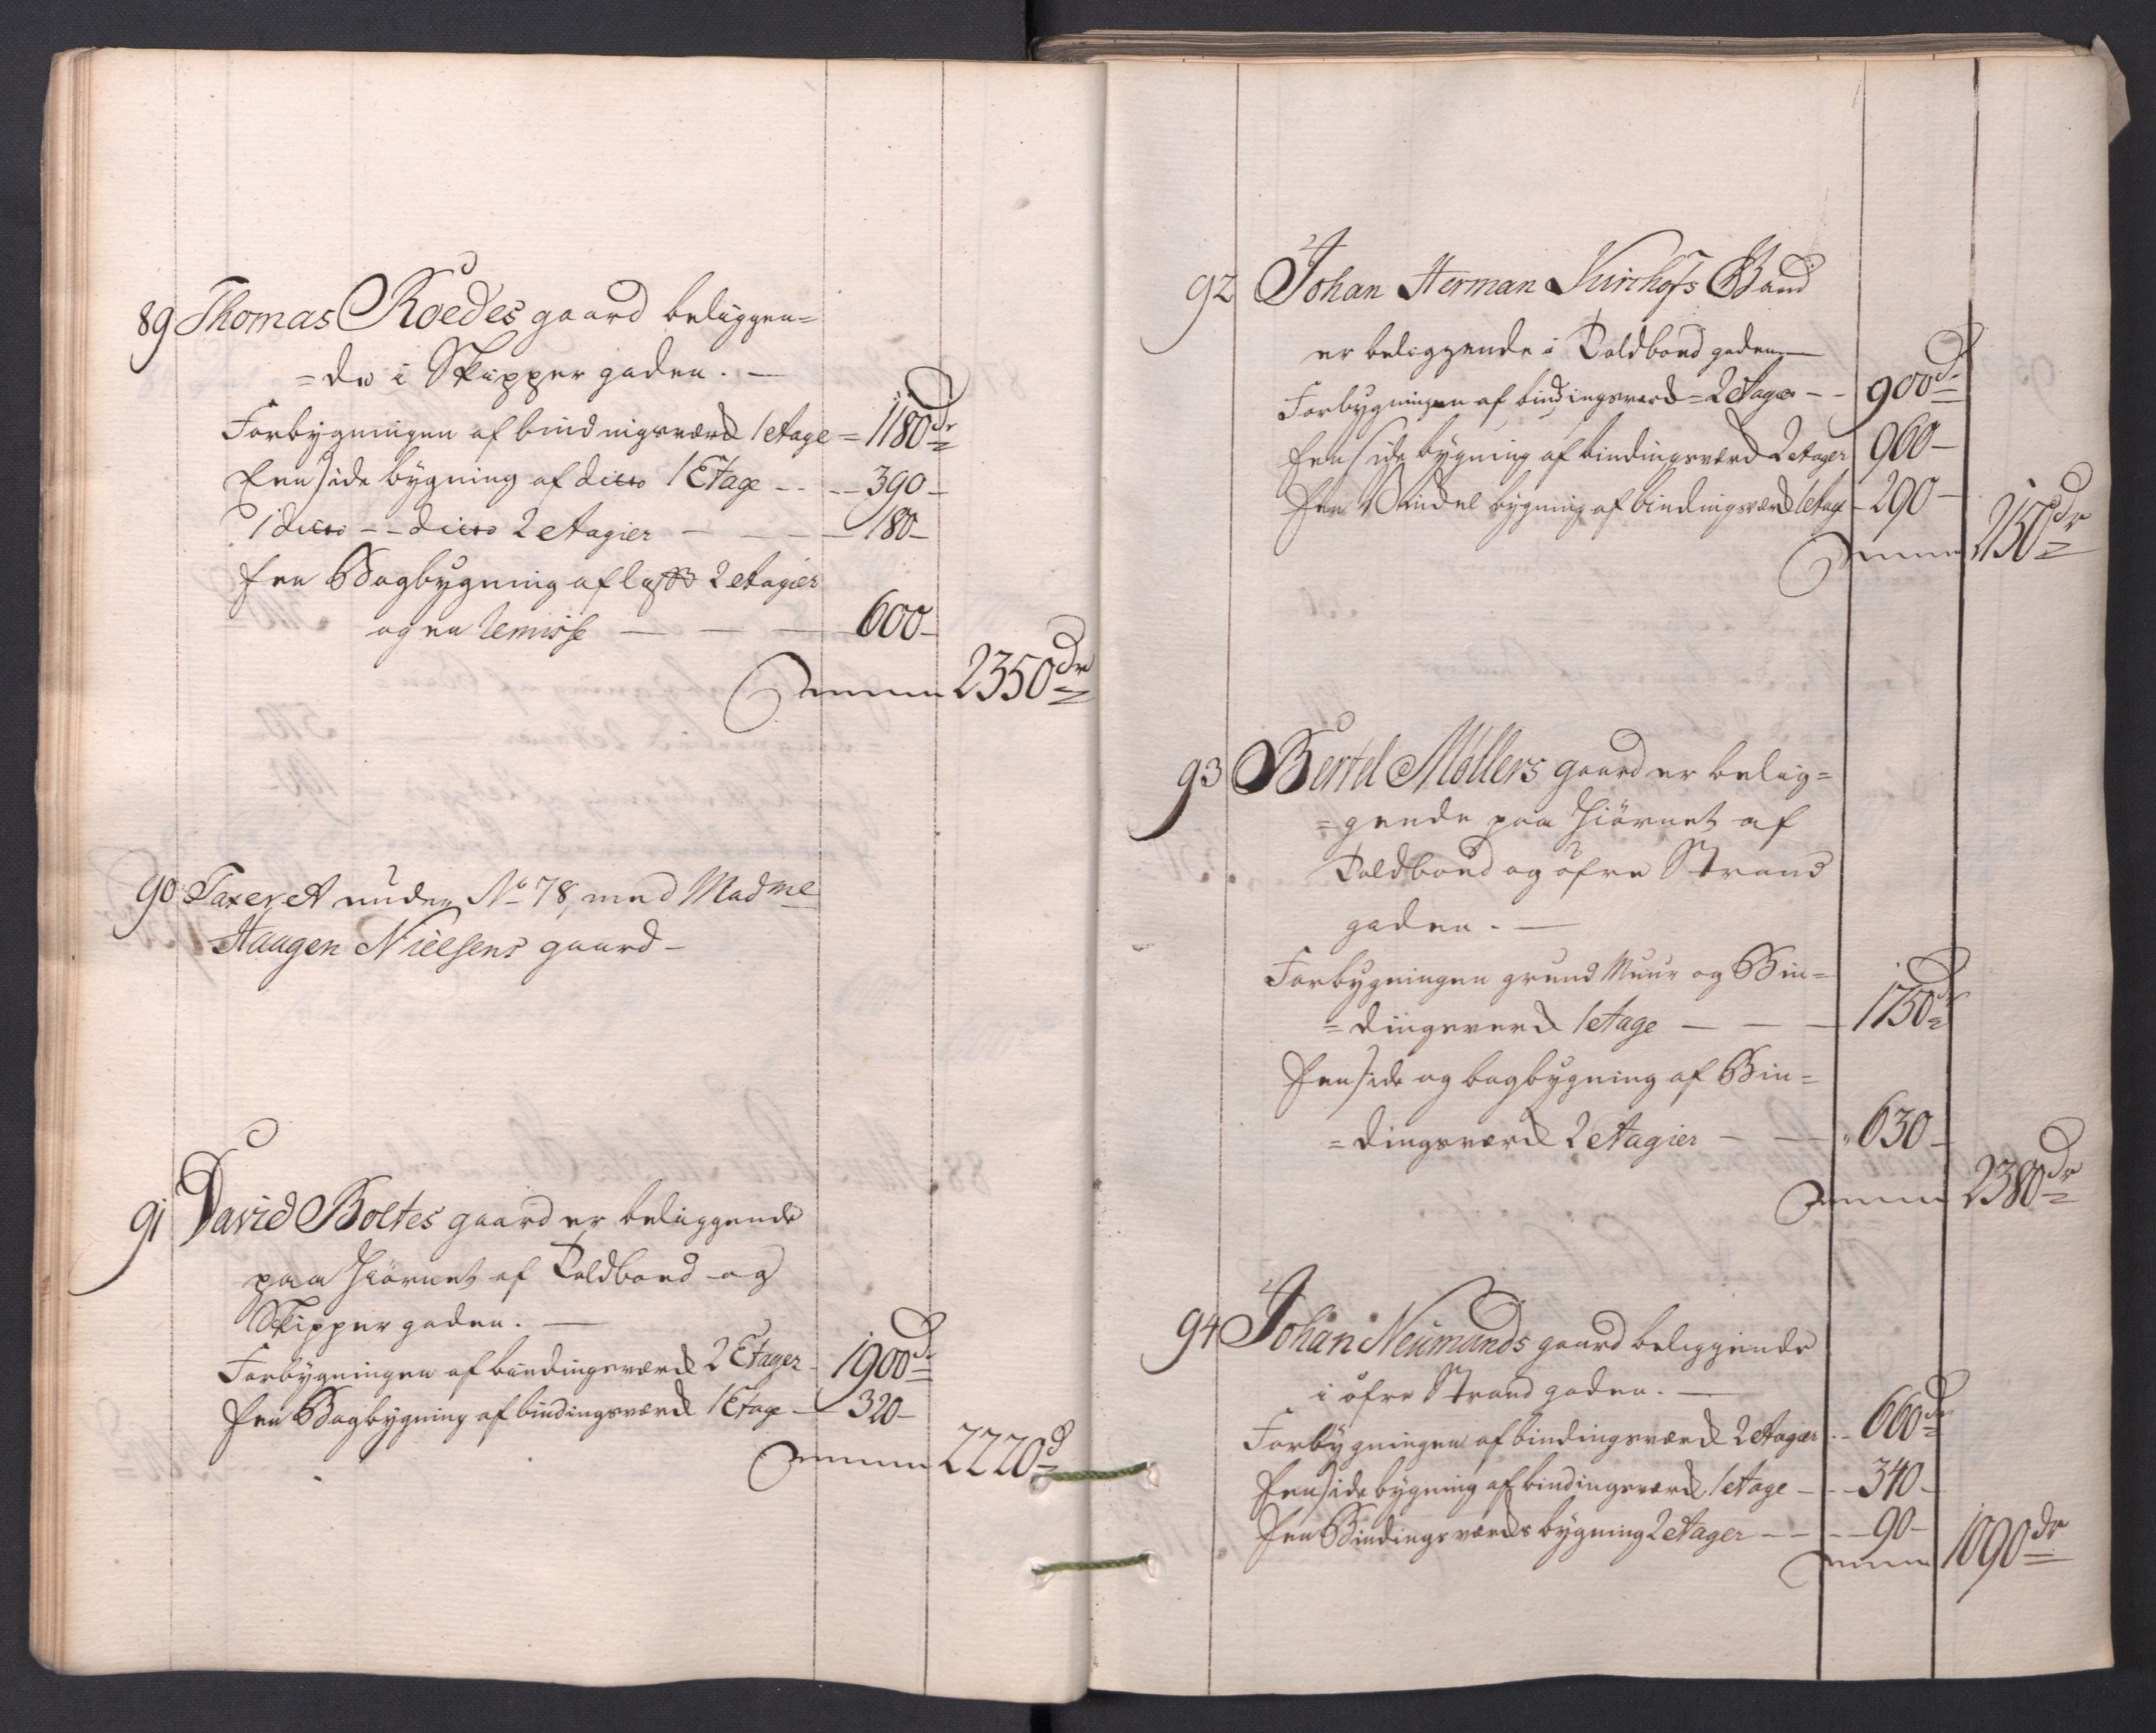 89 Thomas Roedes gaard beliggen=
=de i Skipper gaden. —
Forbygningen af bindingsværd 1 etage = 1180 dr
Een side bygning af ditto 1 Etage - - - 390 -
1 ditto - - ditto 2 etagier - - - 180 -
Een Bagbygning af 2 etagier
og en Remisse — — — 600 -
Summa 2350 dr
90 Taxeret under No 78, med Madme
Haagen Nielsens gaard -
91 David Boltes gaard er beliggende
paa Hiörnet af Toldboed og
Skipper gaden. —
Forbygningen af bindingsværd 2 Etager - 1900 dr
Een Bagbygning af bindingsværd 1 Etage - 320 -
Summa 2220 d
92 Johan Herman Kirchofs Gaard
er beliggende i Toldboed gaden —
Forbygningen af bindingsværd = 2 etager - - 900 dr
Een side bygning af bindingsværd 2 etager 960 -
Een bygning af bindingsværd 1 etage - 290 -
Summa 2150 dr
93 Bertel Möllers gaard er belig=
=gende paa Hiörnet af
Toldboed og öfre Strand
gaden. —
Forbygningen grund Muur og Bin=
=dingsverd 1 etage — — — 1750 dr
Een side og bagbygning af Bin=
=dingsværd 2 etagier — — 630 -
Summa 2380 dr
94 Johan Neumands gaard beliggende
i öfre Strand gaden. —
Forbygningen af bindingsværd 2 etagier - - 660 dr
Een side bygning af bindingsværd 1 etage - - - 340 -
Een Bindingsværds bygning 2 etager - - - - 90 -
Summa 1090 dr